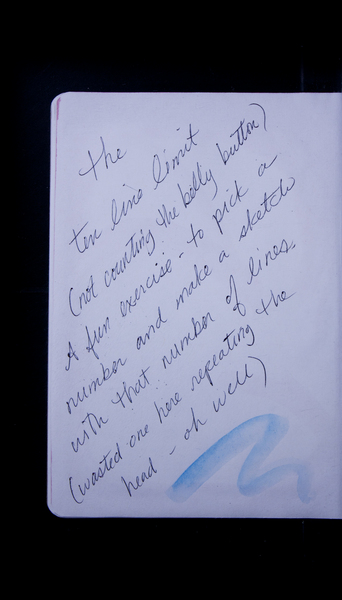 the
ten line limit
(not counting the belly button)
A fun exercise - to pick a
number and make a sketch
with that number of lines.
(wasted one here repeating the
head - oh well)